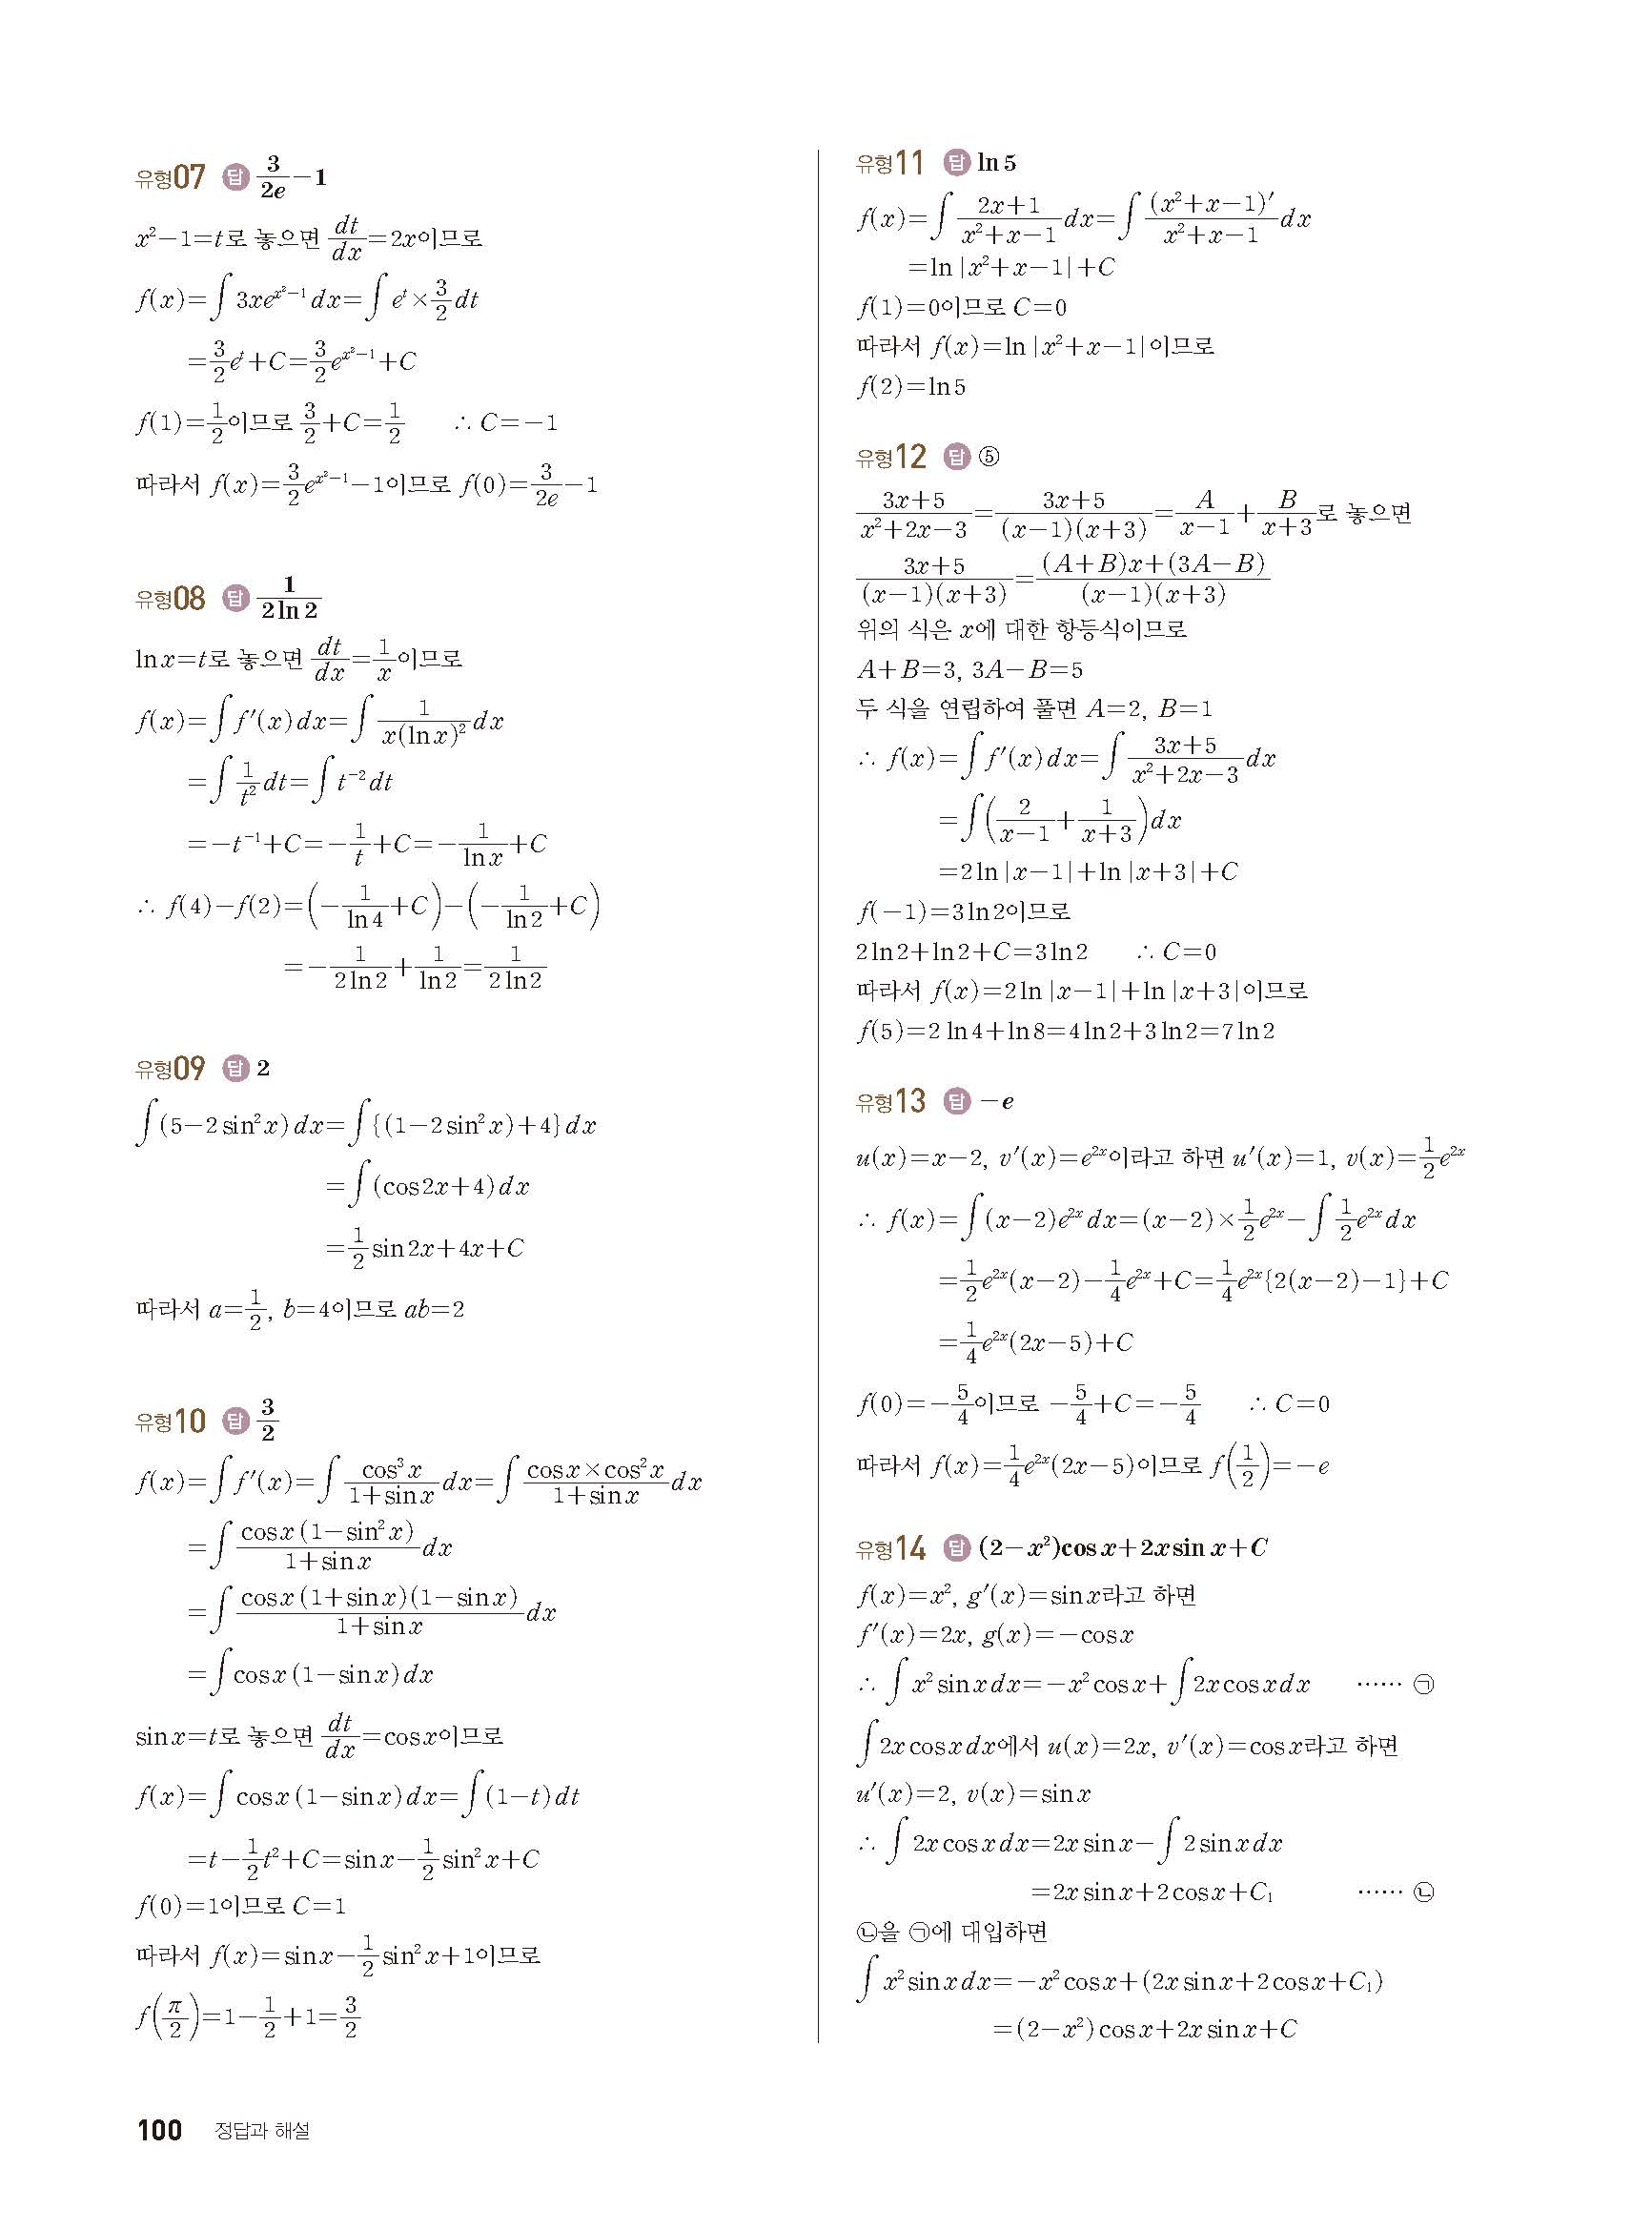 유형07 답 3/2e−1
x²−1=t로 놓으면 dt/dx=2x이므로
f(x)=∫3xe^{x²−1}dx=∫e^t×3/2dt
=3/2e^t+C=3/2e^{x²−1}+C
f(1)=1/2이므로 3/2+C=1/2 ∴ C=−1
따라서 f(x)=3/2e^{x²−1}−1이므로 f(0)=3/2e−1
유형08 답 1/2ln2
lnx=t로 놓으면 dt/dx=1/x이므로
f(x)=∫f′(x)dx=∫1/x(lnx)²dx
=∫1/t²dt=∫t⁻²dt
=−t⁻¹+C=−1/t+C=−1/lnx+C
∴ f(4)−f(2)=(−1/ln4+C)−(−1/ln2+C)
=−1/2ln2+1/ln2=1/2ln2
유형09 답 2
∫(5−2sin²x)dx=∫{(1−2sin²x)+4}dx
=∫(cos2x+4)dx
=1/2sin2x+4x+C
따라서 a=1/2, b=4이므로 ab=2
유형10 답 3/2
f(x)=∫f′(x)=∫cos³x/1+sinx dx=∫cosx×cos²x/1+sinx dx
=∫cosx(1−sin²x)/1+sinx dx
=∫cosx(1+sinx)(1−sinx)/1+sinx dx
=∫cosx(1−sinx)dx
sinx=t로 놓으면 dt/dx=cosx이므로
f(x)=∫cosx(1−sinx)dx=∫(1−t)dt
=t−1/2t²+C=sinx−1/2sin²x+C
f(0)=1이므로 C=1
따라서 f(x)=sinx−1/2sin²x+1이므로
f(π/2)=1−1/2+1=3/2
유형11 답 ln5
f(x)=∫2x+1/x²+x−1dx=∫(x²+x−1)′/x²+x−1dx
=ln|x²+x−1|+C
f(1)=0이므로 C=0
따라서 f(x)=ln|x²+x−1|이므로
f(2)=ln5
유형12 답 ⑤
3x+5/x²+2x−3=3x+5/(x−1)(x+3)=A/x−1+B/x+3로 놓으면
3x+5/(x−1)(x+3)=(A+B)x+(3A−B)/(x−1)(x+3)
위의 식은 x에 대한 항등식이므로
A+B=3, 3A−B=5
두 식을 연립하여 풀면 A=2, B=1
∴ f(x)=∫f′(x)dx=∫3x+5/x²+2x−3dx
=∫(2/x−1+1/x+3)dx
=2ln|x−1|+ln|x+3|+C
f(−1)=3ln2이므로
2ln2+ln2+C=3ln2 ∴ C=0
따라서 f(x)=2ln|x−1|+ln|x+3|이므로
f(5)=2ln4+ln8=4ln2+3ln2=7ln2
유형13 답 −e
u(x)=x−2, v′(x)=e^{2x}이라고 하면 u′(x)=1, v(x)=1/2e^{2x}
∴ f(x)=∫(x−2)e^{2x}dx=(x−2)×1/2e^{2x}−∫1/2e^{2x}dx
=1/2e^{2x}(x−2)−1/4e^{2x}+C=1/4e^{2x}{2(x−2)−1}+C
=1/4e^{2x}(2x−5)+C
f(0)=−5/4이므로 −5/4+C=−5/4 ∴ C=0
따라서 f(x)=1/4e^{2x}(2x−5)이므로 f(1/2)=−e
유형14 답 (2−x²)cosx+2xsinx+C
f(x)=x², g′(x)=sinx라고 하면
f′(x)=2x, g(x)=−cosx
∴ ∫x²sinxdx=−x²cosx+∫2xcosxdx …… ㉠
∫2xcosxdx에서 u(x)=2x, v′(x)=cosx라고 하면
u′(x)=2, v(x)=sinx
∴ ∫2xcosxdx=2xsinx−∫2sinxdx
=2xsinx+2cosx+C₁ …… ㉡
㉡을 ㉠에 대입하면
∫x²sinxdx=−x²cosx+(2xsinx+2cosx+C₁)
=(2−x²)cosx+2xsinx+C
100 정답과 해설